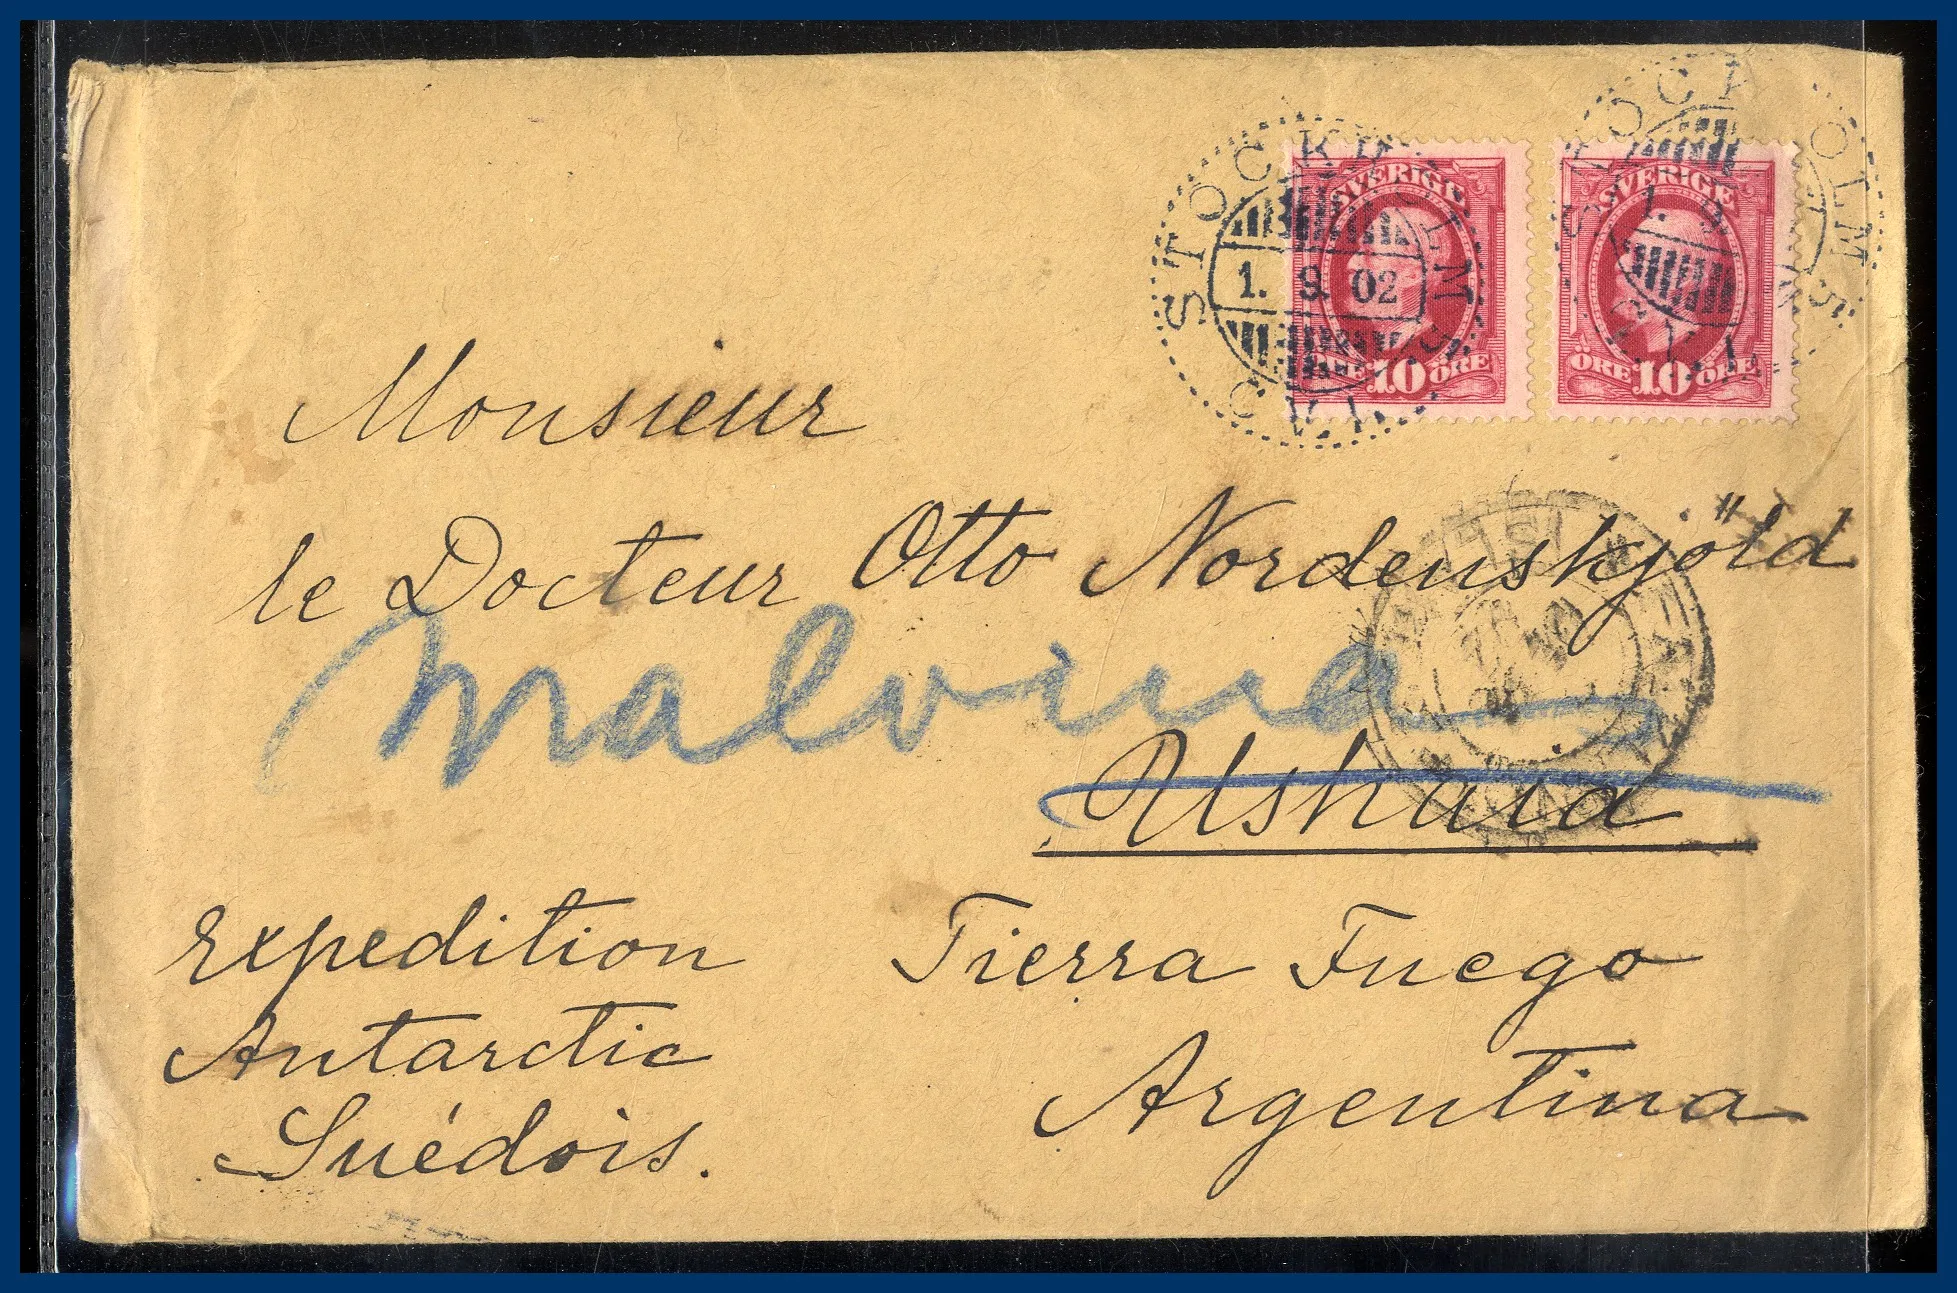 STOCKHOLM 5
1. 9. 02
SVERIGE
ÖRE 10 ÖRE
STOCKHOLM 5
1. 9.
SVERIGE
ÖRE 10 ÖRE
Monsieur
le Docteur Otto Nordenskjöld
Malvinas
Ushaia
Expedition
Antarctic
Suédois.
Tierra Fuego
Argentina